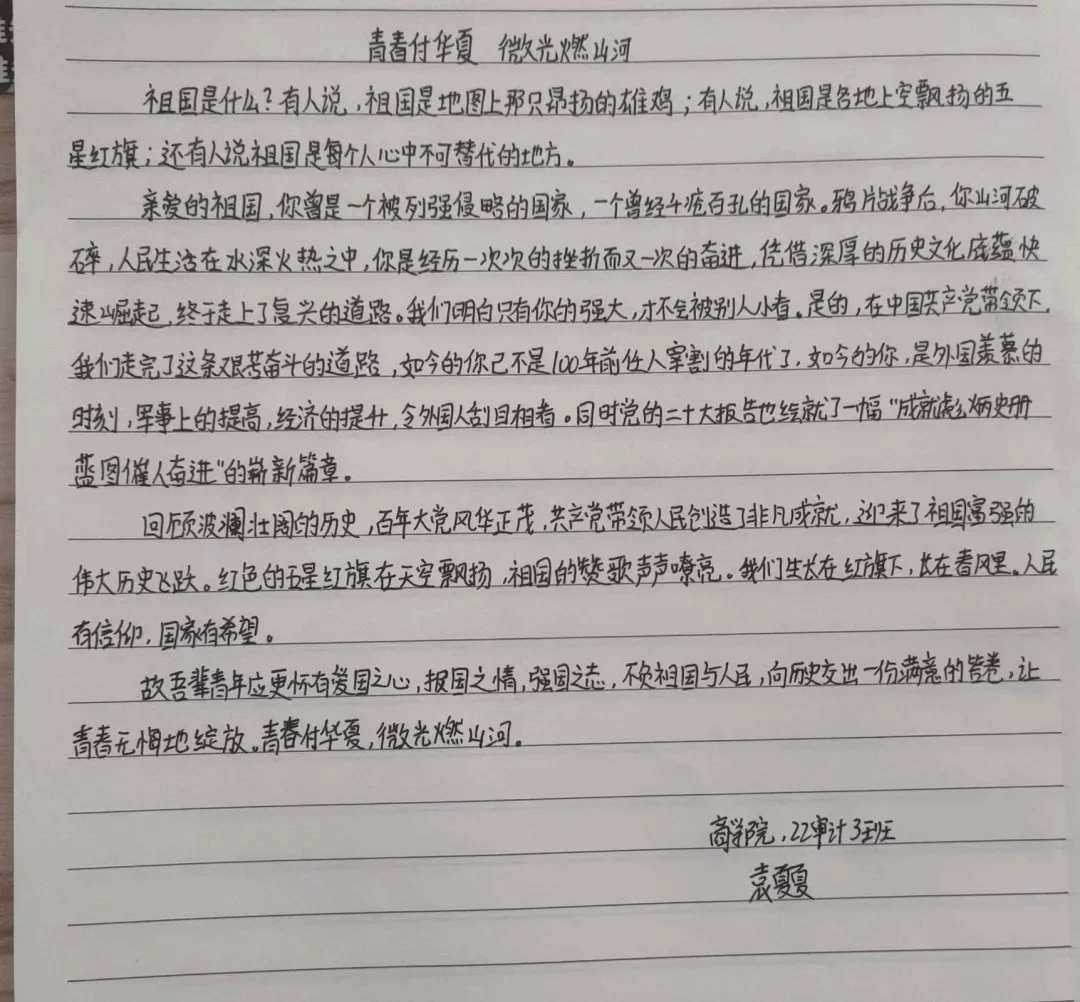 青春付华夏 微光燃山河
祖国是什么？有人说，祖国是地图上那只昂扬的雄鸡；有人说，祖国是各地上空飘扬的五
星红旗；还有人说祖国是每个人心中不可替代的地方。
亲爱的祖国，你曾是一个被列强侵略的国家，一个曾经千疮百孔的国家。鸦片战争后，你山河破
碎，人民生活在水深火热之中，你是经历一次次的挫折而又一次的奋进，凭借深厚的历史文化底蕴快
速崛起，终于走上了复兴的道路。我们明白只有你的强大，才不会被别人小看。是的，在中国共产党带领下，
我们走完了这条艰苦奋斗的道路，如今的你已不是100年前任人宰割的年代了，如今的你，是外国羡慕的
时刻，军事上的提高，经济的提升，令外国人刮目相看。同时党的二十大报告也绘就了一幅“成就彪炳史册
蓝图催人奋进”的崭新篇章。
回顾波澜壮阔的历史，百年大党风华正茂，共产党带领人民创造了非凡成就，迎来了祖国富强的
伟大历史飞跃。红色的五星红旗在天空飘扬，祖国的赞歌声声嘹亮。我们生长在红旗下，长在春风里。人民
有信仰，国家有希望。
故吾辈青年应更怀有爱国之心，报国之情，强国之态，不负祖国与人民，向历史交出一份满意的答卷，让
青春无悔地绽放。青春付华夏，微光燃山河。
商学院，22审计3班
袁夏夏